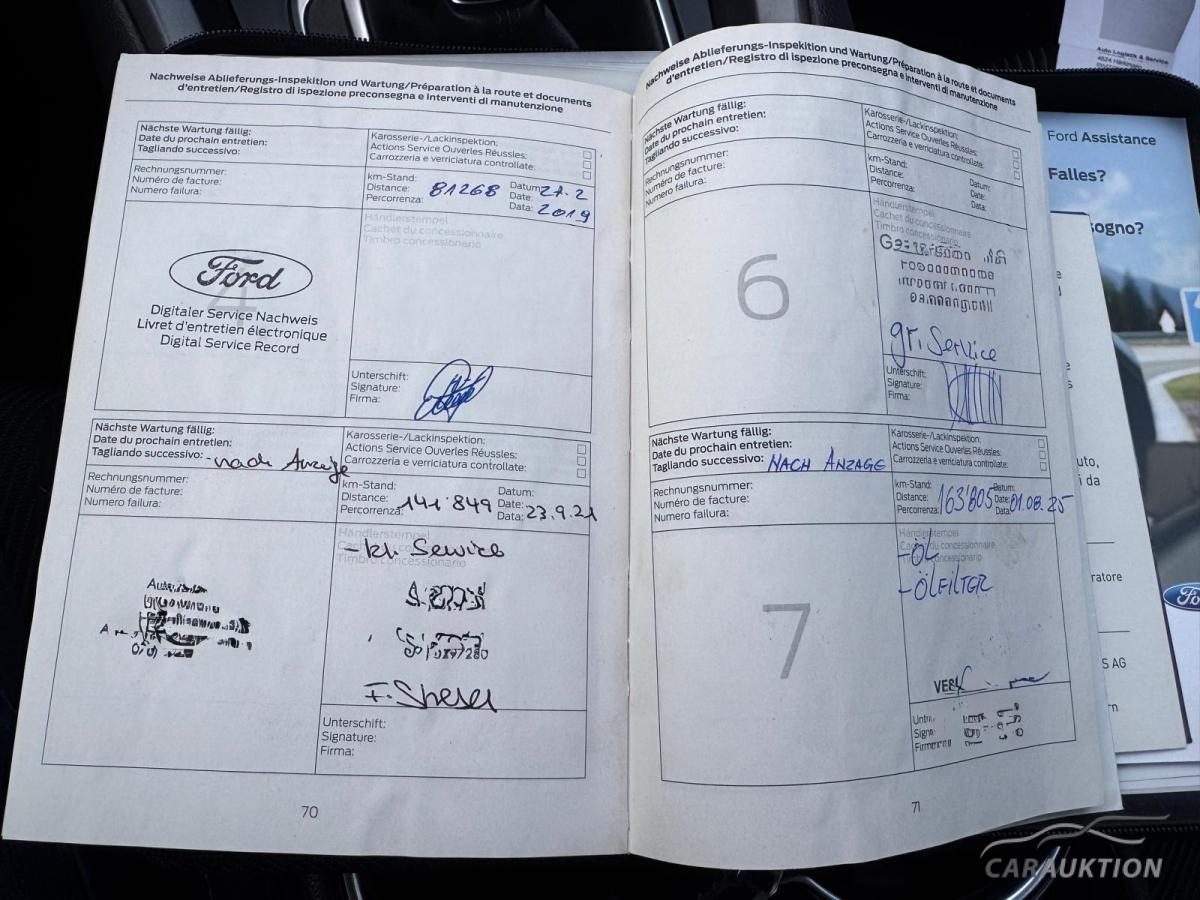 Nachweise Ablieferungs-Inspekition und Wartung/Préparation à la route et documents
d'entretien/Registro di ispezione preconsegna e interventi di manutenzione
Nächste Wartung fällig:
Date du prochain entretien:
Tagliando successivo:
Karosserie-/Lackinspektion:
Actions Service Ouverles Réussles:
Carrozzeria e verriciatura controllate:
Rechnungsnummer:
Numéro de facture:
Numero failura:
km-Stand:
Distance:
Percorrenza:
81268
Datum: 21.2
Date:
Data: 2019
Händlerstempel
Cachet du concessionnaire
Timbro concessionario
4
Ford
Digitaler Service Nachweis
Livret d'entretien électronique
Digital Service Record
Unterschift:
Signature:
Firma:
Nächste Wartung fällig:
Date du prochain entretien:
Tagliando successivo: - nach Anzeige
Karosserie-/Lackinspektion:
Actions Service Ouverles Réussles:
Carrozzeria e verriciatura controllate:
Rechnungsnummer:
Numéro de facture:
Numero failura:
km-Stand:
Distance:
Percorrenza:
141'849
Datum:
Date:
Data: 23.9.21
Händlerstempel
Cachet du concessionnaire
Timbro concessionario
- kl. Service
Unterschift:
Signature:
Firma:
70
Nachweise Ablieferungs-Inspekition und Wartung/Préparation à la route et documents
d'entretien/Registro di ispezione preconsegna e interventi di manutenzione
Nächste Wartung fällig:
Date du prochain entretien:
Tagliando successivo:
Karosserie-/Lackinspektion:
Actions Service Ouverles Réussles:
Carrozzeria e verriciatura controllate:
Rechnungsnummer:
Numéro de facture:
Numero failura:
km-Stand:
Distance:
Percorrenza:
Datum:
Date:
Data:
Händlerstempel
Cachet du concessionnaire
Timbro concessionario
6
gr. Service
Unterschift:
Signature:
Firma:
Nächste Wartung fällig:
Date du prochain entretien:
Tagliando successivo: NACH ANZAGE
Karosserie-/Lackinspektion:
Actions Service Ouverles Réussles:
Carrozzeria e verriciatura controllate:
Rechnungsnummer:
Numéro de facture:
Numero failura:
km-Stand:
Distance:
Percorrenza:
163'805
Datum:
Date:
Data: 01.08.25
Händlerstempel
Cachet du concessionnaire
Timbro concessionario
-ÖL
-ÖLFILTER
7
71
Auto Logistik & Service
Ford Assistance
Falles?
sogno?
uto,
i da
ratore
S AG
CARAUKTION